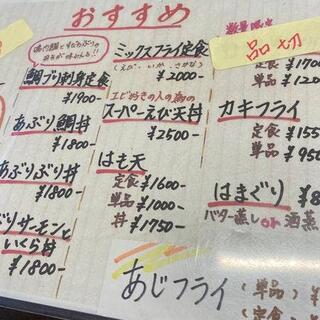 おすすめ
鯛ブリ刺身定食
¥1900-
あぶり鯛丼
¥1800-
あぶりぶり丼
¥1800-
ぶりサーモンと
いくら丼
¥1800-
ミックスフライ定食
(えび、いか、さかな)
¥2000-
エビ好きの人の為の
スーパーえび天丼
¥2500-
はも天
定食 ¥1600-
単品 ¥1000-
丼 ¥1750-
数量限定
品切
定食 ¥1700
単品 ¥120
カキフライ
定食 ¥155
単品 ¥950
はまぐり ¥8
バター蒸し or 酒蒸
あじフライ
(単品) ¥
(定食)